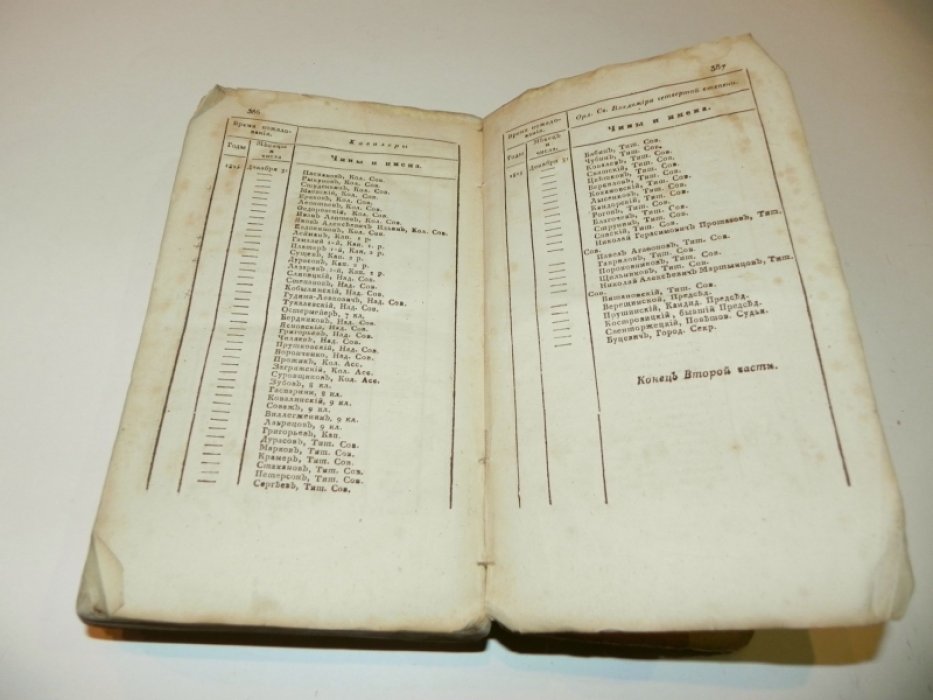 386
Время пожало-
ванія.
Кавалеры
Годы
Мѣсяцы
и
числа
Чины и имена.
Декабря 31
Кол. Сов.
Рыкуновъ, Кол. Сов.
Студеникъ, Кол. Сов.
Кол. Сов.
Ераковъ, Кол. Сов.
Кол. Сов.
Федоровскій, Кол. Сов.
Иванъ Кол. Сов.
Яковъ Алексѣевичъ Ильинъ, Кол. Сов.
Кол. Сов.
Кап. 1 р.
1-й, Кап. 1 р.
1-й, Кап. 2 р.
Сущевъ, Кап. 2 р.
Кап. 2 р.
Лазаревъ 1-й, Кап. 2 р.
Над. Сов.
Степановъ, Над. Сов.
Кобылинскій, Над. Сов.
Гудима-Левковичъ, Над. Сов.
Тукалевскій, Над. Сов.
Остермейеръ, 7 кл.
Бердниковъ, Над. Сов.
Ясновскій, Над. Сов.
Григорьевъ, Над. Сов.
Чиляевъ, Над. Сов.
Прушковскій, Над. Сов.
Воронченко, Над. Сов.
Кол. Асс.
Загряжскій, Кол. Асс.
Суровщиковъ, Кол. Асс.
Зубовъ, 8 кл.
Гаспарини, 8 кл.
Ковалинскій, 9 кл.
9 кл.
9 кл.
Лаврецовъ, 9 кл.
Григорьевъ, Кап.
Дурасовъ, Тит. Сов.
Марковъ, Тит. Сов.
Крамеръ, Тит. Сов.
Стакановъ, Тит. Сов.
Петерсонъ, Тит. Сов.
Сергѣевъ, Тит. Сов.
387
Время пожало-
ванія.
Орд. Св. Владиміра четвертой степени.
Годы
Мѣсяц
и
числа
Чины и имена.
Декабря 31
Бабинъ, Тит. Сов.
Чубинъ, Тит. Сов.
Ковалевъ, Тит. Сов.
Тит. Сов.
Цвѣтковъ, Тит. Сов.
Тит. Сов.
Тит. Сов.
Лысенковъ, Тит. Сов.
Кандорскій, Тит. Сов.
Роговъ, Тит. Сов.
Благочевъ, Тит. Сов.
Струнинъ, Тит. Сов.
Савскій, Тит. Сов.
Николай Герасимовичъ Протаковъ, Тит.
Сов.
Павелъ Агафоновъ, Тит. Сов.
Гавриловъ, Тит. Сов.
Пороховниковъ, Тит. Сов.
Щильниковъ, Тит. Сов.
Николай Алексѣевичъ Мартынцовъ, Тит.
Сов.
Тит. Сов.
Верещинской, Предсѣд.
Прушинскій, Кандид. Предсѣд.
Костровицкій, бывшій Предсѣд.
Слепторжецкій, Повѣтов. Судья.
Буцевичъ, Город. Секр.
Конецъ Второй части.